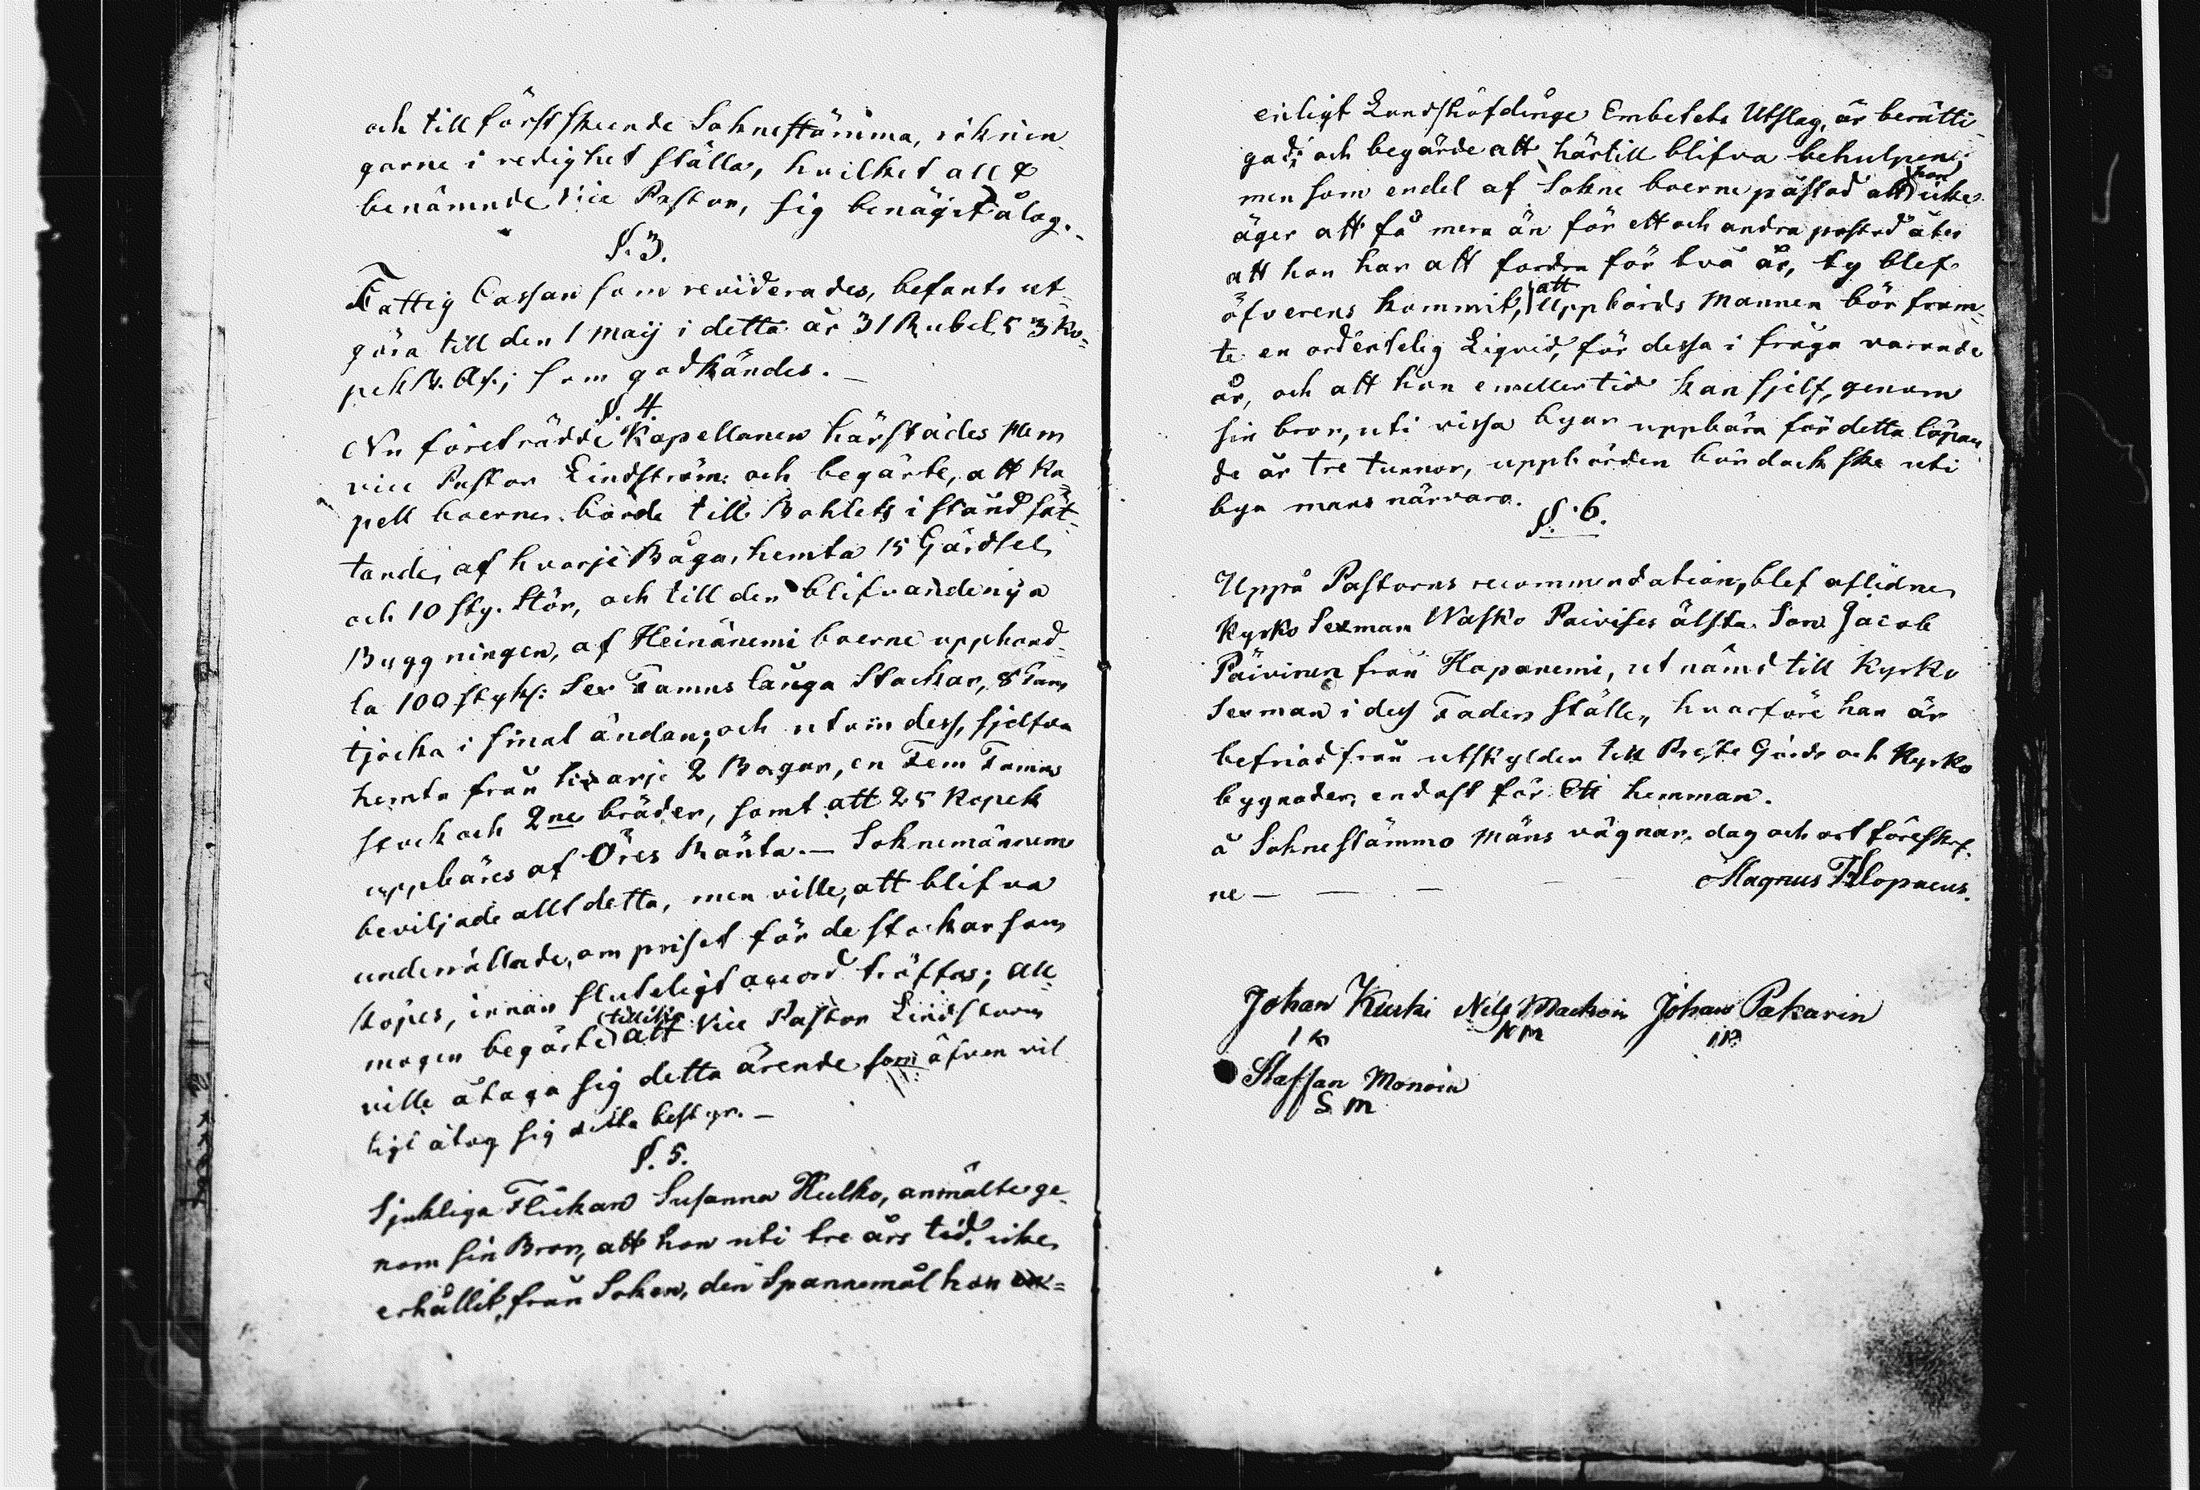 och till först skeende Sokne stämma, räknin
garne i redighet ställa, hvilket allt
benämnde vice Pastor, sig benäget åtog.
§. 3.
Fattig Cassan som reviderades, befants ut-
göra till den 1 Maij i detta år 31 Rubel 53 Ko-
pek; som godkändes.
§. 4.
Nu företrädde Kapellanen härstädes
vice Pastor Lindström och begärte, att Ka
pell boerne borde till Bohlets i stånd sät-
tande, af hvarje Båga, hemta 15 Gärdsel
och 10 sty. Stör, och till den blifvande nya
Byggningen, af Heinänemi boerne upphand-
la 100 styks: Sex Famns långa Stockar, 8 Tums
tjocka i smal ändan; och utom dess, sjelfva
hemta från hvarje 2 Bågar, en Fem Famns
stock och 2ne bräder, samt att 25 Kopek
uppbäres af Öres Ränta. — Soknemännerne
beviljade allt detta, men ville, att blifva
underrättade, om priset för de stockar som
köpes, innan sluteligt accord träffas; All
mogen begärte tillika att Vice Pastor Lindström
ville åtaga sig detta ärende som äfven vil
ligt åtog sig detta bestyr. —
§. 5.
Sjukliga Flickan Susanna Hulko, anmälte ge
nom sin Bror, att hon uti tre års tid, icke
erhållit, från Soken, den Spannemål hon
enligt Landshöfdinge Embetets Utslag, är berätti
gad; och begärde att härtill blifva behulpen;
men som endel af Sokne boerne påstod att hon icke
äger att få mera än för ett och andra påstod åter
att hon har att fordra för två år, ty blef
öfverens kommit, att Uppbörds Mannen bör fram-
te en ordentelig Liqvid, för dessa i fråga varande
år, och att hon emellertid kan sjelf, genom
sin bror, uti vissa byar uppbära för detta löpan
de år tre tunnor, uppbörden bör dock ske uti
bya mans närvaro.
§. 6.
Uppå Pastorns recommendation, blef aflidne
Kyrko Sexman Wasko Päivises älsta Son Jacob
Päivinen från Hapanemi, utnämd till Kyrko
Sexman i dess Faders ställe, hvarföre han är
befriad från utskylder till Preste Gårds och Kyrko
bygnader, endast för Ett hemman.
å Sokne stämmo Mäns vägnar, dag och ort föreskrf.
ne — — — — — Magnus Alopaeus.
Johan Kuski Nils Mackoin Johan Pakarin
I K N M I P
Staffan Monoin
S M